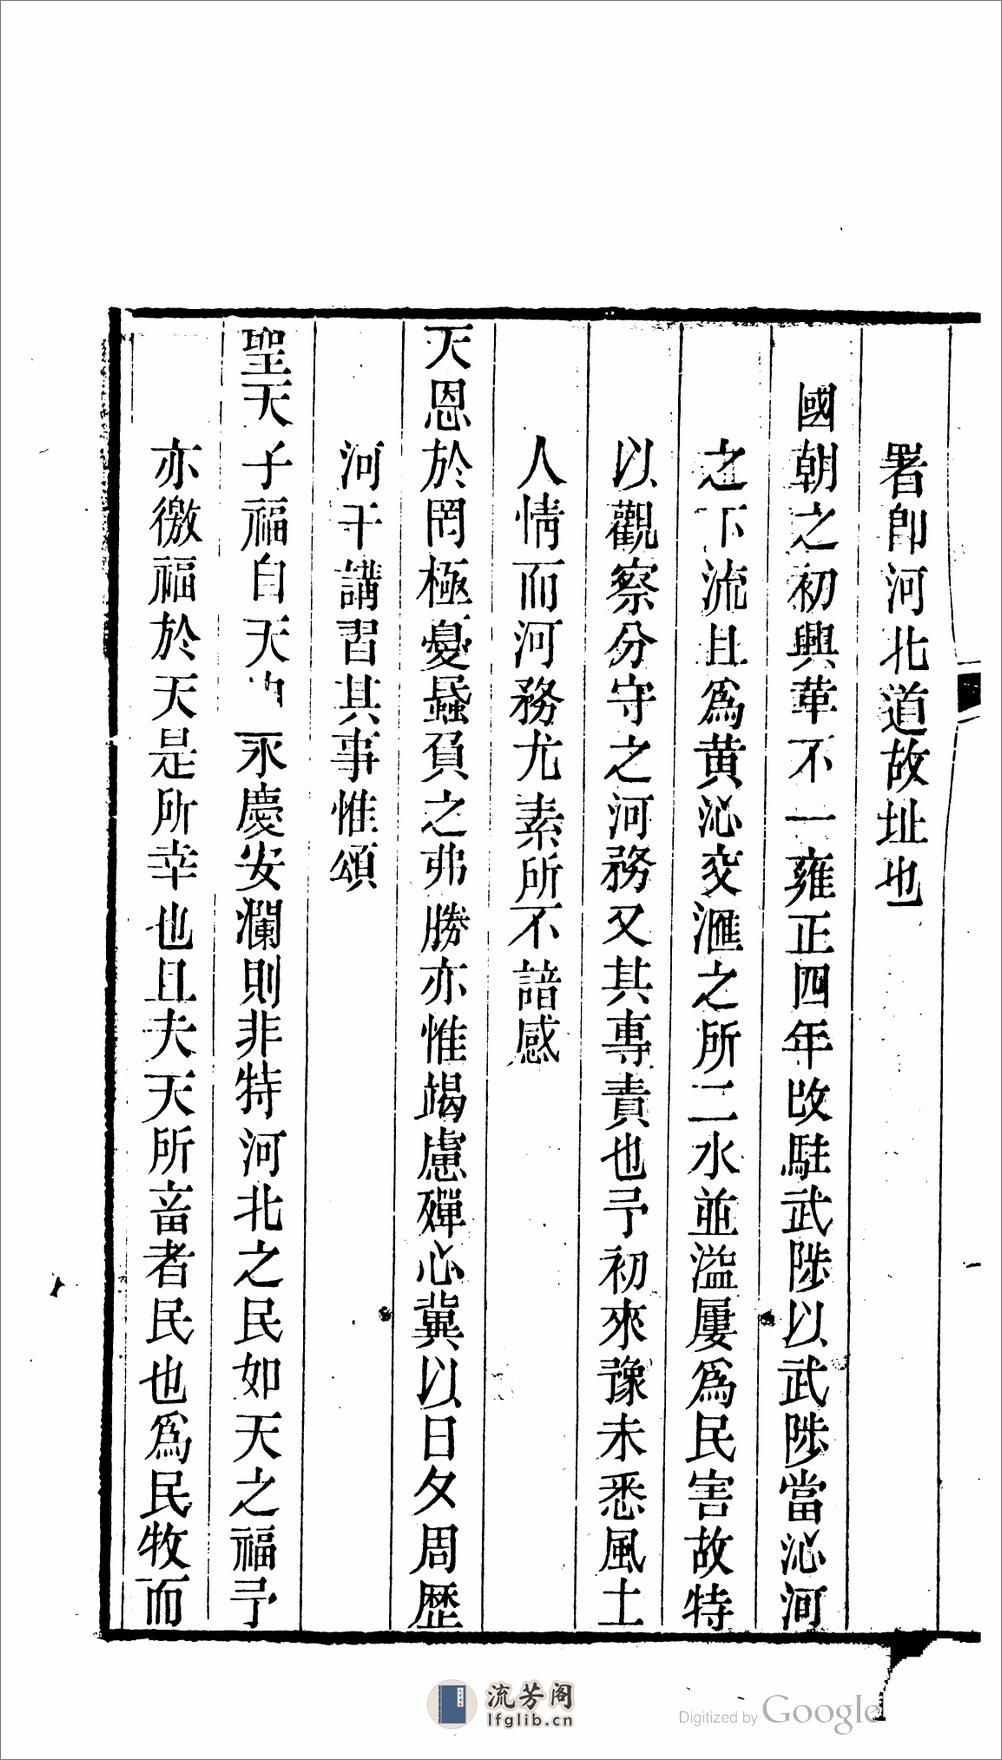 署卽河北道故址也
國朝之初興革不一雍正四年改駐武陟以武陟當沁河
之下流且爲黄沁交滙之所二水並溢屢爲民害故特
以觀察分守之河務又其專責也予初來豫未悉風土
人情而河務尤素所不諳感
天恩於罔極憂蟁負之弗勝亦惟竭慮殫心冀以日夕周歷
河干講習其事惟頌
聖天子福自天申永慶安瀾則非特河北之民如天之福予
亦徼福於天是所幸也且夫天所畜者民也爲民牧而
流芳阁
lfglib.cn
Digitized by Google